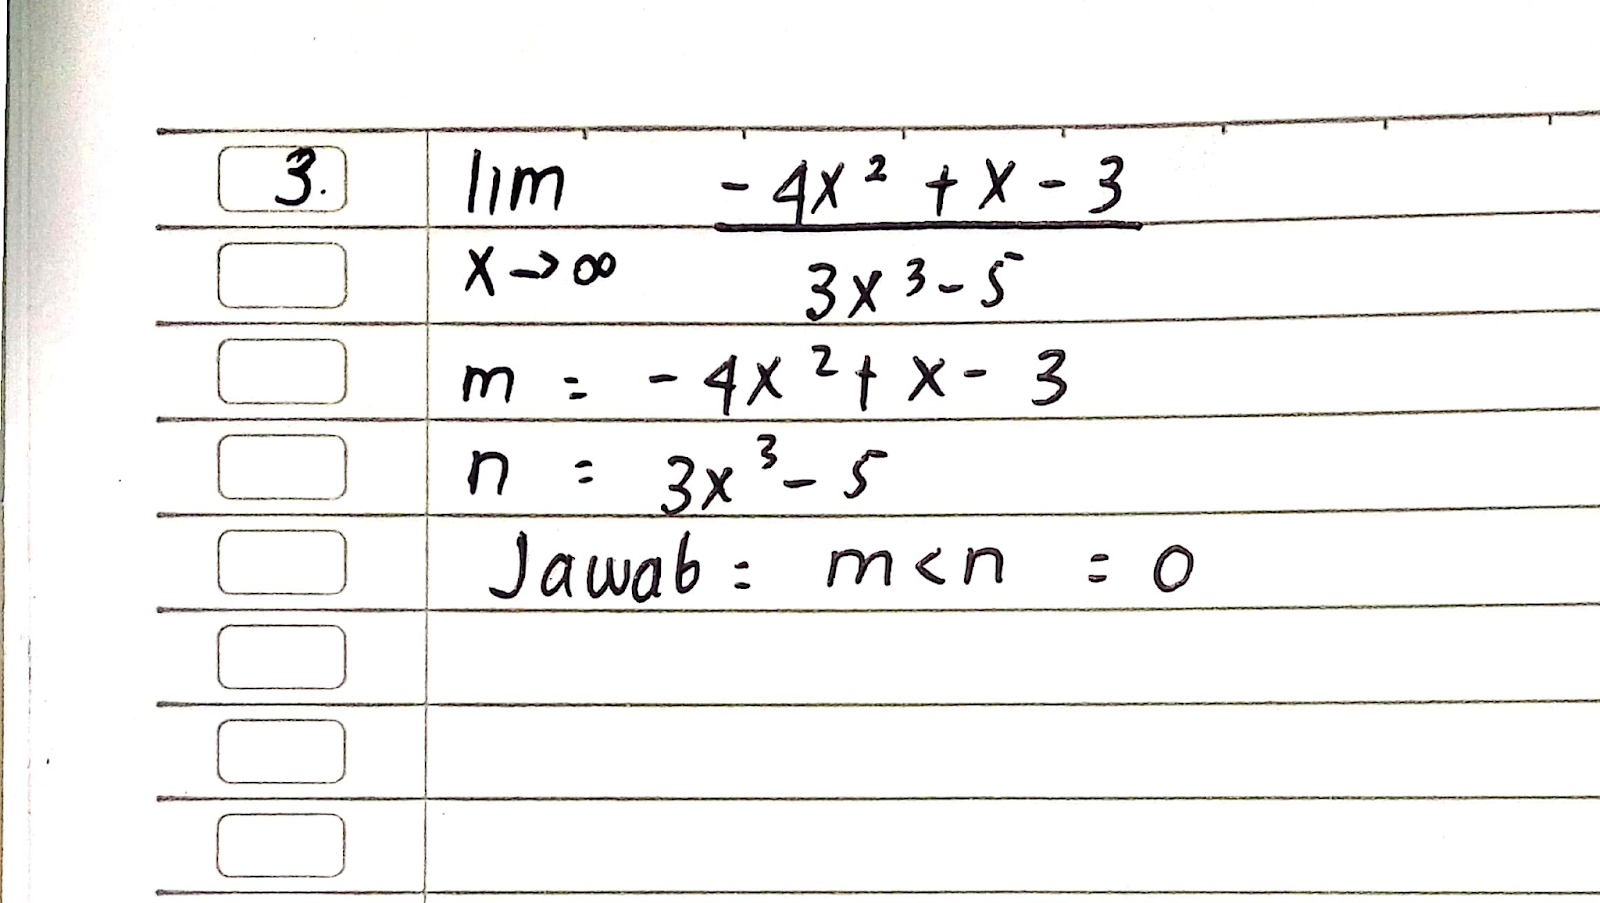 3. lim -4x² + x - 3
x→∞ 3x³ - 5
m = -4x² + x - 3
n = 3x³ - 5
Jawab = m<n = 0